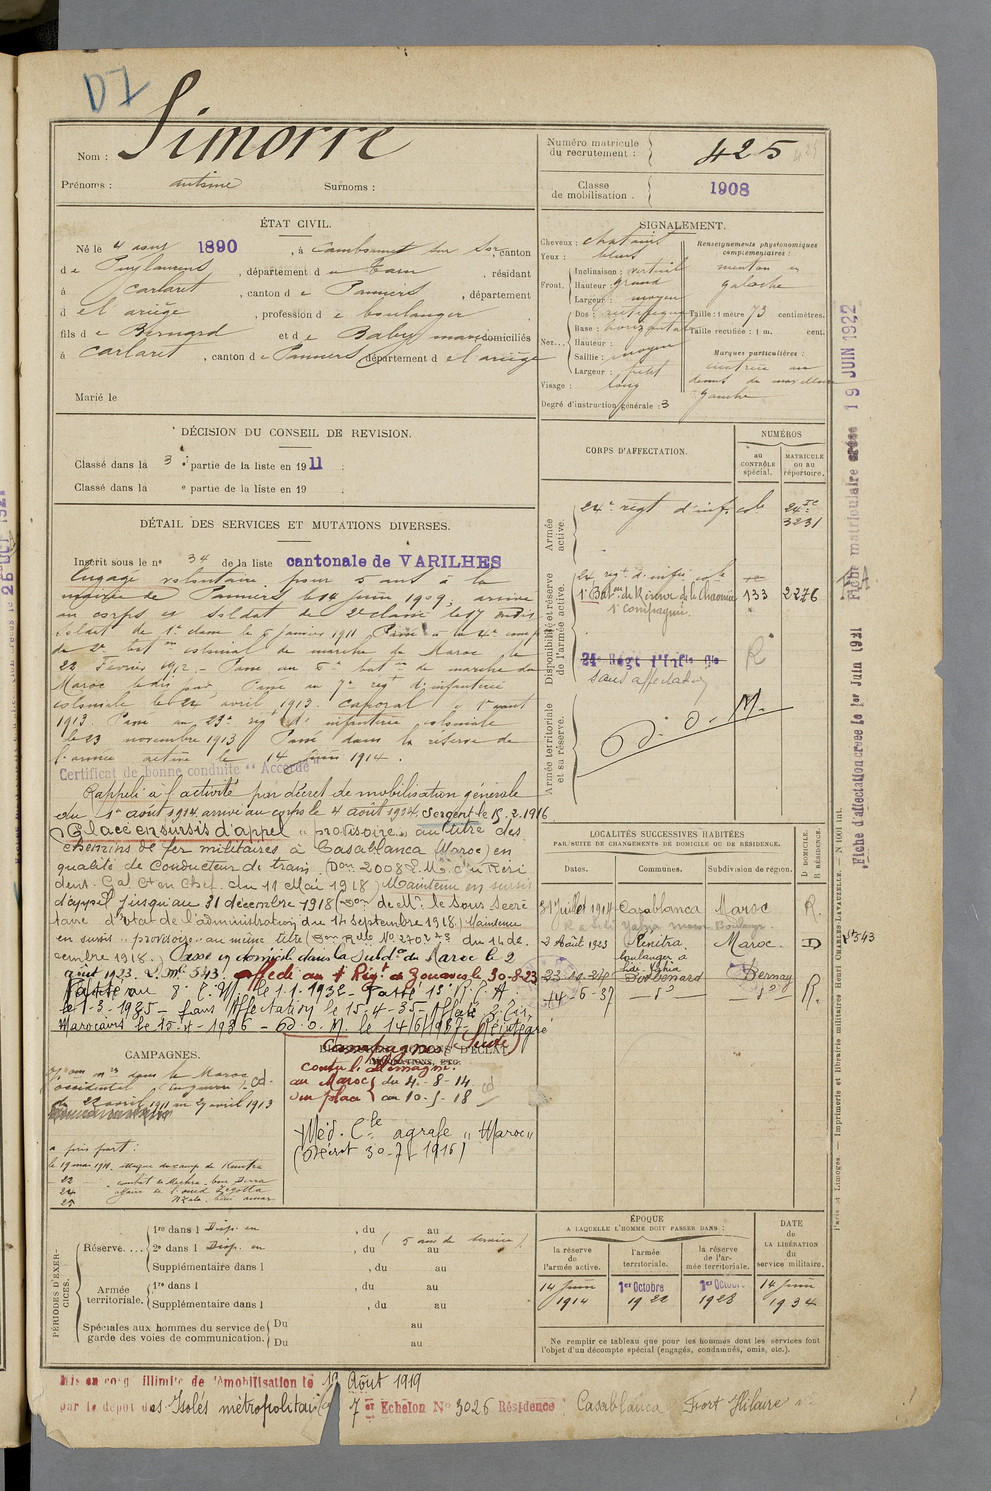 D7
Nom : Simorre
Prénoms : Antoine Surnoms :
Numéro matricule du recrutement : 425
Classe de mobilisation . 1908
ÉTAT CIVIL.
Né le 4 1890 , à Cambounet sur Sor, canton
d e Puylaurens , département d u Tarn , résidant
à Carlaret , canton d e Pamiers , département
d el ariège , profession d e boulanger ,
fils d e Bernard et d e Baley domiciliés
à Carlaret , canton d e Pamiers département d el ariège
Marié le
SIGNALEMENT.
Cheveux : chatains
Yeux : bleus
Front. Inclinaison : vertical
Hauteur : grand
Largeur : moyen
Nez... Dos : rectiligne
Base : horizontale
Hauteur :
Saillie : moyen
Largeur : petit
Visage : long
Degré d'instruction générale : 3
Renseignements physionomiques complémentaires :
menton en
galoche
Taille : 1 mètre 73 centimètres.
Taille rectifiée : 1 m. cent.
Marques particulières :
cicatrice au
dessus du maxillaire
gauche
DÉCISION DU CONSEIL DE REVISION.
Classé dans la 3 e partie de la liste en 1911 .
Classé dans la e partie de la liste en 19 .
DÉTAIL DES SERVICES ET MUTATIONS DIVERSES.
Inscrit sous le n° 34 de la liste cantonale de VARILHES
Engagé volontaire pour 5 ans à la
mairie de Pamiers le 14 juin 1909, arrivé
au corps et soldat de 2e classe le 17 dudit
soldat de 1e classe le 6 janvier 1911 Passé à la 4e comp
de 2e bat on colonial de marche du Maroc le
22 Février 1912 - Passé au 6e bat on de marche du
Maroc Passé au 7e régt d'infanterie
coloniale le 24 avril 1913. caporal le 1er août
1913. Passé au 23e régt d'infanterie coloniale
le 23 novembre 1913 Passé dans la réserve de
l'armée active le 14 juin 1914.
Certificat de bonne conduite "Accordé"
Rappelé à l'activité par décret de mobilisation générale
du 1er août 1914 arrivé au corps le 4 août 1914 Sergent le 15.2.1916
Placé en sursis d'appel "provisoire" au titre des
chemins de fer militaires à Casablanca (Maroc) en
qualité de Conducteur de train. (Don 2008 L.M. du Rési
dent. Gal Ct en Chef. du 11 Mai 1918) Maintenu en sursis
d'appel jusqu'au 31 décembre 1918 (Don de Mr le Sous Secré
taire d'état de l'administration du 14 septembre 1918) Maintenu
en sursis "provisoire" au même titre du 14 dé
cembre 1918. Classé en domicile dans la Subdon du Maroc le 2
août 1923. L.M. 543. affecté au 1 Régt de Zouaves le 30-8-23
Passé au 8e C.M. le 1.1.1932 - Passé 13e R.C.A.
le 1-3-1935 - Sans Affectation le 15-4-35 - Affecté
Marocains le 15-4-1936 - D.O.M. le 14/6/1937 - Réintégré
CORPS D'AFFECTATION.
NUMÉROS
au contrôle spécial.
MATRICULE ou au répertoire.
Armée active.
24e régt d'infie col 3231
Disponibilité et réserve de l'armée active.
24 régt d'infie cole
1er Baton de Réserve de la Chaouia 133 2276
1e compagnie
24e Régt d'Infie Cle R
sans affectation
Armée territoriale et sa réserve.
D. O. M.
LOCALITÉS SUCCESSIVES HABITÉES
PAR SUITE DE CHANGEMENTS DE DOMICILE OU DE RÉSIDENCE.
Dates. Communes. Subdivision de région. D DOMICILE. R RÉSIDENCE.
31 Juillet 1914 Casablanca Maroc R.
2 Août 1923 Kénitra. Maroc D
boulanger à
Sidi Yahia
23-12-24 Bernay
14-6-37 R.
Fiche matriculaire créée 19 JUIN 1922
Fiche d'affectation créée le 1er Juin 1921
CAMPAGNES.
du 22 avril 1911 au 29 avril 1913
a pris part :
le 19 mai 1911. attaque du camp de Kenitra
22 combat de Mechra bou Derra
24 affaire de l'oued Zegotta
25 Nzala beni amar
Campagnes (Suite)
contre l'Allemagne.
au Maroc du 4-8-14
sur place au 10-5-18
Méd. Cle agrafe "Maroc"
(Décret 30-7-1916)
PÉRIODES D'EXERCICES.
Réserve.... 1re dans l Disp. en , du au
2e dans l Disp. en , du au (5 ans de service)
Supplémentaire dans l , du au
Armée territoriale. 1re dans l , du au
Supplémentaire dans l , du au
Spéciales aux hommes du service de garde des voies de communication. Du au
Du au
ÉPOQUE
A LAQUELLE L'HOMME DOIT PASSER DANS :
la réserve de l'armée active.
l'armée territoriale.
la réserve de l'armée territoriale.
DATE DE LA LIBÉRATION du service militaire.
14 Juin 1914
1er Octobre 1922
1er Octobre 1928
14 Juin 1934
Ne remplir ce tableau que pour les hommes dont les services font
l'objet d'un décompte spécial (engagés, condamnés, omis, etc.).
Paris et Limoges. — Imprimerie et librairie militaires Henri CHARLES-LAVAUZELLE. — N° 1001 int.
Mis en congé illimité de démobilisation le 19 Août 1919
par le dépôt des Isolés métropolitains 7e Echelon N° 3026 Résidence : Casablanca Fort Hilaire